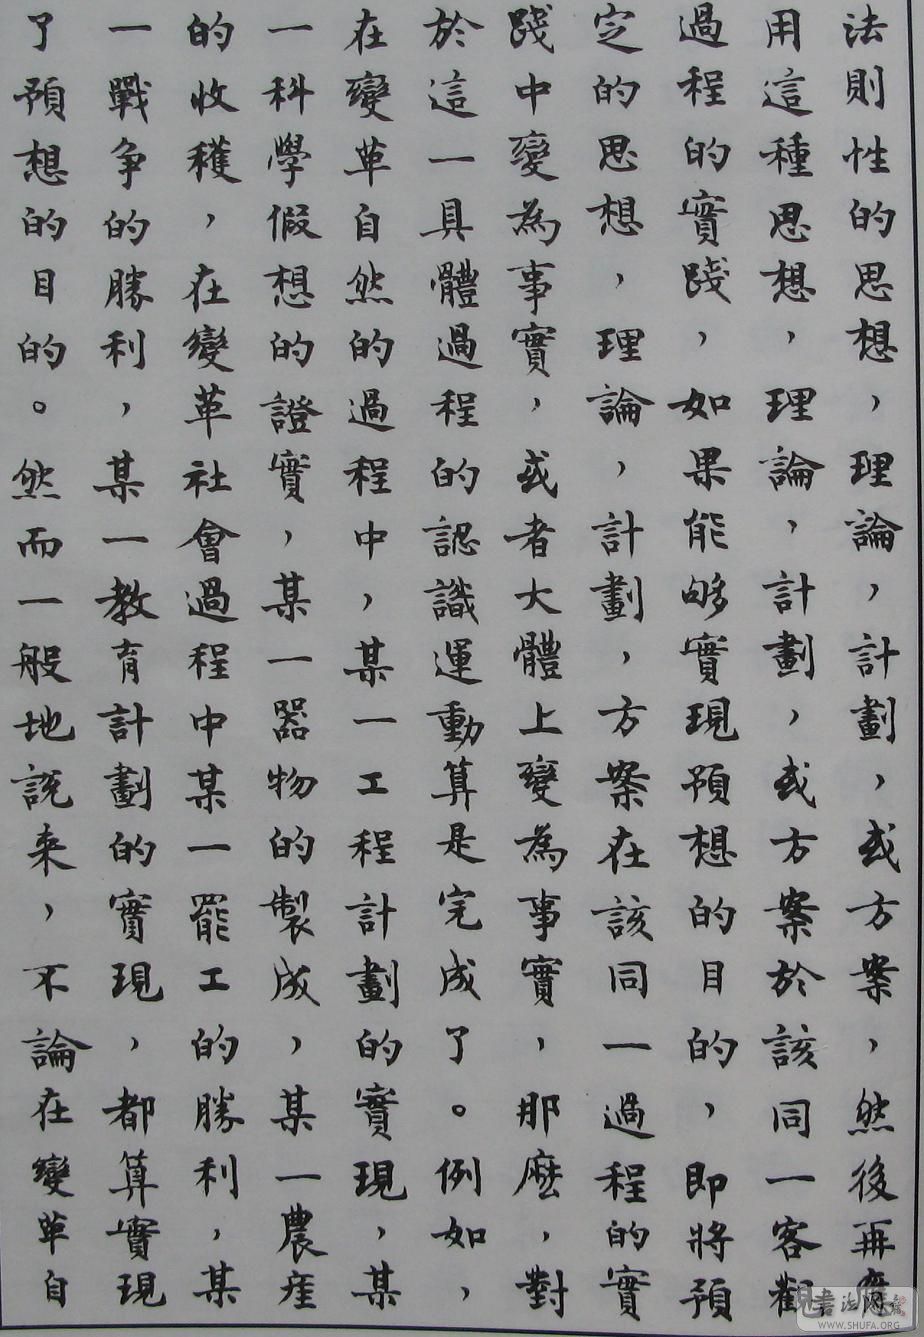 法則性的思想，理論，計劃，或方案，然後再應
用這種思想，理論，計劃，或方案於該同一客觀
過程的實踐，如果能够實現預想的目的，即將預
定的思想，理論，計劃，方案在該同一過程的實
踐中變為事實，或者大體上變為事實，那麽，對
於這一具體過程的認識運動算是完成了。例如，
在變革自然的過程中，某一工程計劃的實現，某
一科學假想的證實，某一器物的製成，某一農産
的收穫，在變革社會過程中某一罷工的勝利，某
一戰争的勝利，某一教育計劃的實現，都算實現
了預想的目的。然而一般地説来，不論在變革自
書法
WWW.SHUFA.ORG